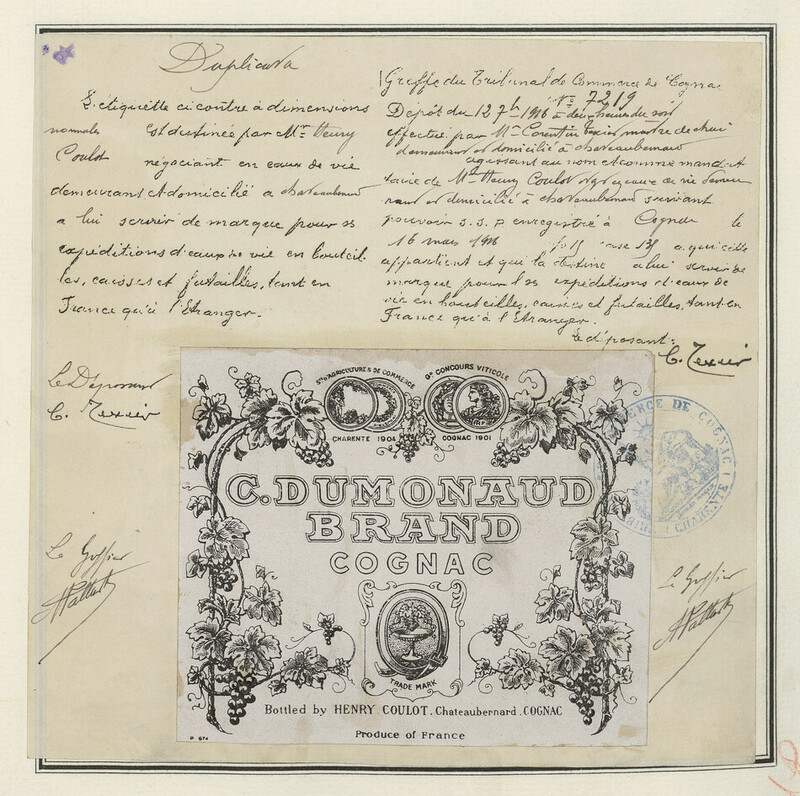 Duplicata
L'étiquette ci contre à dimensions
normales est destinée par Mr Henry
Coulot négociant en eaux de vie
demeurant et domicilié a chateaubernard
a lui servir de marque pour ses
expéditions d'eaux de vie en bouteil
les, caisses et futailles, tant en
France qu'à l'Etranger.
Le Déposant
C. Texier
Le Greffier
Greffe du Tribunal de Commerce de Cognac
No 7219
Dépôt du 12 7bre 1916 à deux heures du soir
effectué par Mr Corentin Texier maître de chai
demeurant et domicilié à chateaubernard
agissant au nom et comme mandat
taire de Mr Henry Coulot négt en eaux de vie demeu
rant et domicilié à chateaubernard suivant
pouvoir s.s.p enregistré à Cognac le
16 mars 1916 case 135 a qui elle
appartient et qui la destine à lui servir de
marque pour ses expéditions d'eaux de
vie en bouteilles, caisses et futailles, tant en
France qu'à l'Etranger.
Le déposant:
C. Texier
Sté D'AGRICULTURE & DE COMMERCE
Gd CONCOURS VITICOLE
CHARENTE 1904
COGNAC 1901
C. DUMONAUD
BRAND
COGNAC
TRADE MARK
Bottled by HENRY COULOT. Chateaubernard. COGNAC
Produce of France
P 674
DE COGNAC
Le Greffier